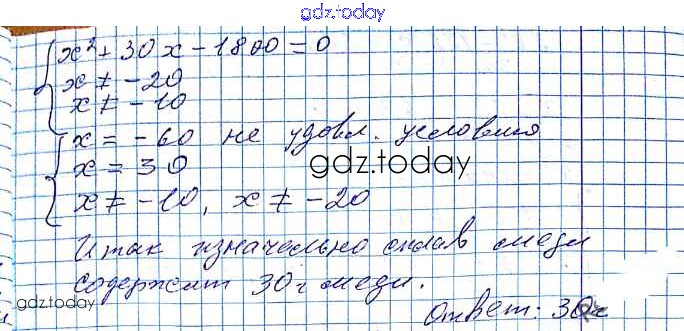 gdz.today
x² + 30x - 1800 = 0
x ≠ -20
x ≠ -10
x = -60 не удовл. условия
x = 30
gdz.today
x ≠ -10, x ≠ -20
Итак изначально сплав меди
содержит 30 г меди.
gdz.today
Ответ: 30г